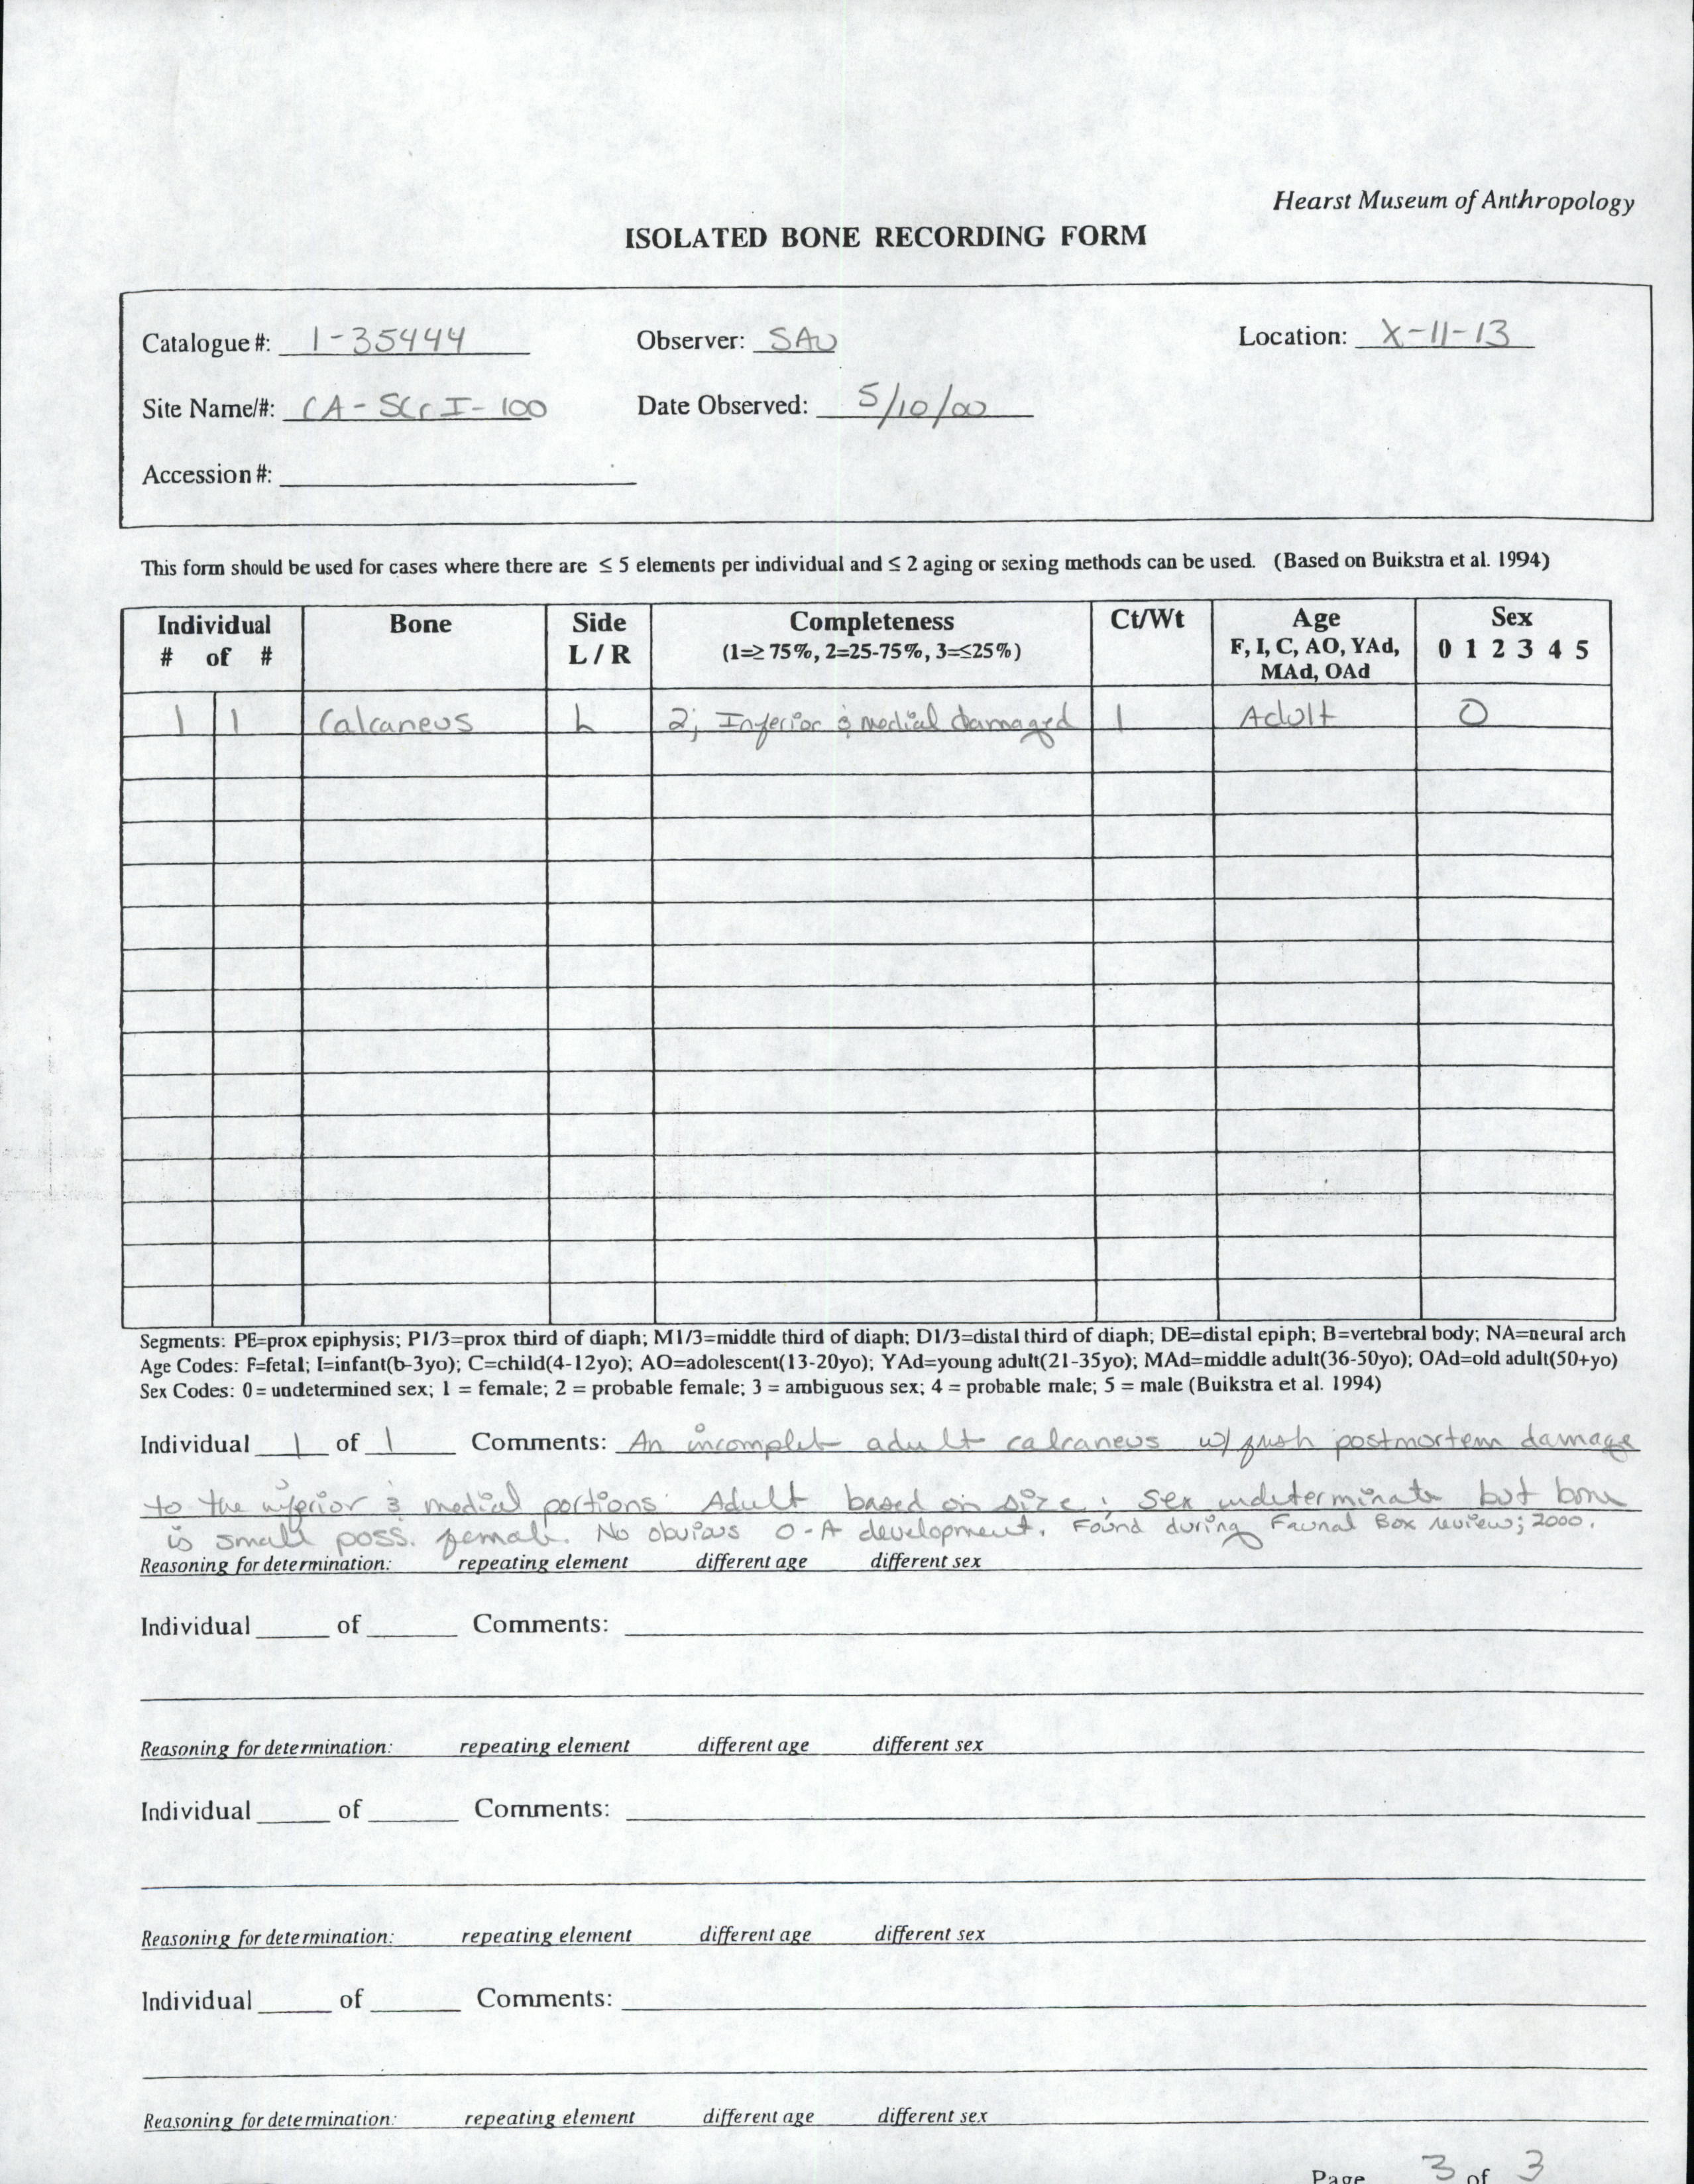 Hearst Museum of Anthropology
ISOLATED BONE RECORDING FORM
Catalogue #: 1-35444 Observer: SAW Location: X-11-13
Site Name/#: CA-SCrI-100 Date Observed: 5/10/00
Accession #:
This form should be used for cases where there are ≤ 5 elements per individual and ≤ 2 aging or sexing methods can be used. (Based on Buikstra et al. 1994)
Individual Bone Side Completeness Ct/Wt Age Sex
# of # L / R (1=≥ 75%, 2=25-75%, 3=≤25%) F, I, C, AO, YAd, 0 1 2 3 4 5
MAd, OAd
1 1 Calcaneus L 2; Inferior & medial damaged 1 Adult 0
Segments: PE=prox epiphysis; P1/3=prox third of diaph; M1/3=middle third of diaph; D1/3=distal third of diaph; DE=distal epiph; B=vertebral body; NA=neural arch
Age Codes: F=fetal; I=infant(b-3yo); C=child(4-12yo); AO=adolescent(13-20yo); YAd=young adult(21-35yo); MAd=middle adult(36-50yo); OAd=old adult(50+yo)
Sex Codes: 0 = undetermined sex; 1 = female; 2 = probable female; 3 = ambiguous sex; 4 = probable male; 5 = male (Buikstra et al. 1994)
Individual 1 of 1 Comments: An incomplete adult calcaneus w/ fresh postmortem damage
to the inferior & medial portions. Adult based on size; sex indeterminate but bone
is small poss. female. No obvious O-A development. Found during Faunal Box review; 2000.
Reasoning for determination: repeating element different age different sex
Individual of Comments:
Reasoning for determination: repeating element different age different sex
Individual of Comments:
Reasoning for determination: repeating element different age different sex
Individual of Comments:
Reasoning for determination: repeating element different age different sex
Page 3 of 3